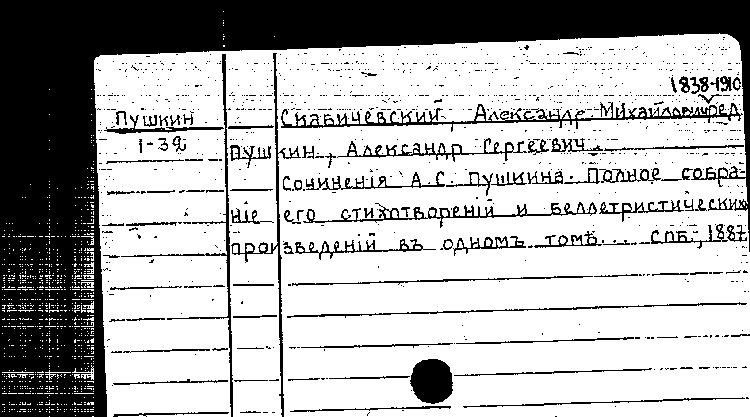 1838-1910
Пушкин Скабичевский, Александр Михайлович, ред
1-32 Пушкин, Александр Сергеевич.
Сочиненія А.С. Пушкина. Полное собра-
ніе его стихотвореній и беллетристических
произведеній въ одномъ томѣ... СПБ., 1887